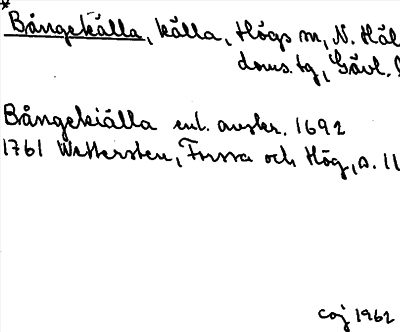 *Bångekälla, källa, Högs sn, N. Häl
doms. tg, Gävl. l
Bångekiälla enl. avskr. 1692
1761 Wettersten, Forssa och Hög, s. 11
CGJ 1962